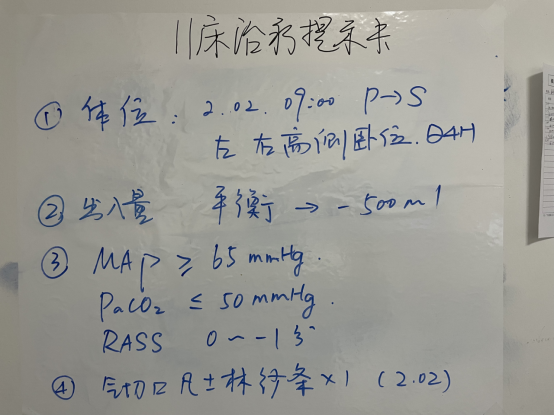 11床治疗提示卡
① 体位: 2.02. 09:00 P→S
左右高侧卧位. Q4H
② 出入量 平衡 → -500ml
③ MAP ≥ 65 mmHg.
PaCO₂ ≤ 50 mmHg.
RASS 0~-1分
④ 气切口凡士林纱条×1 (2.02)